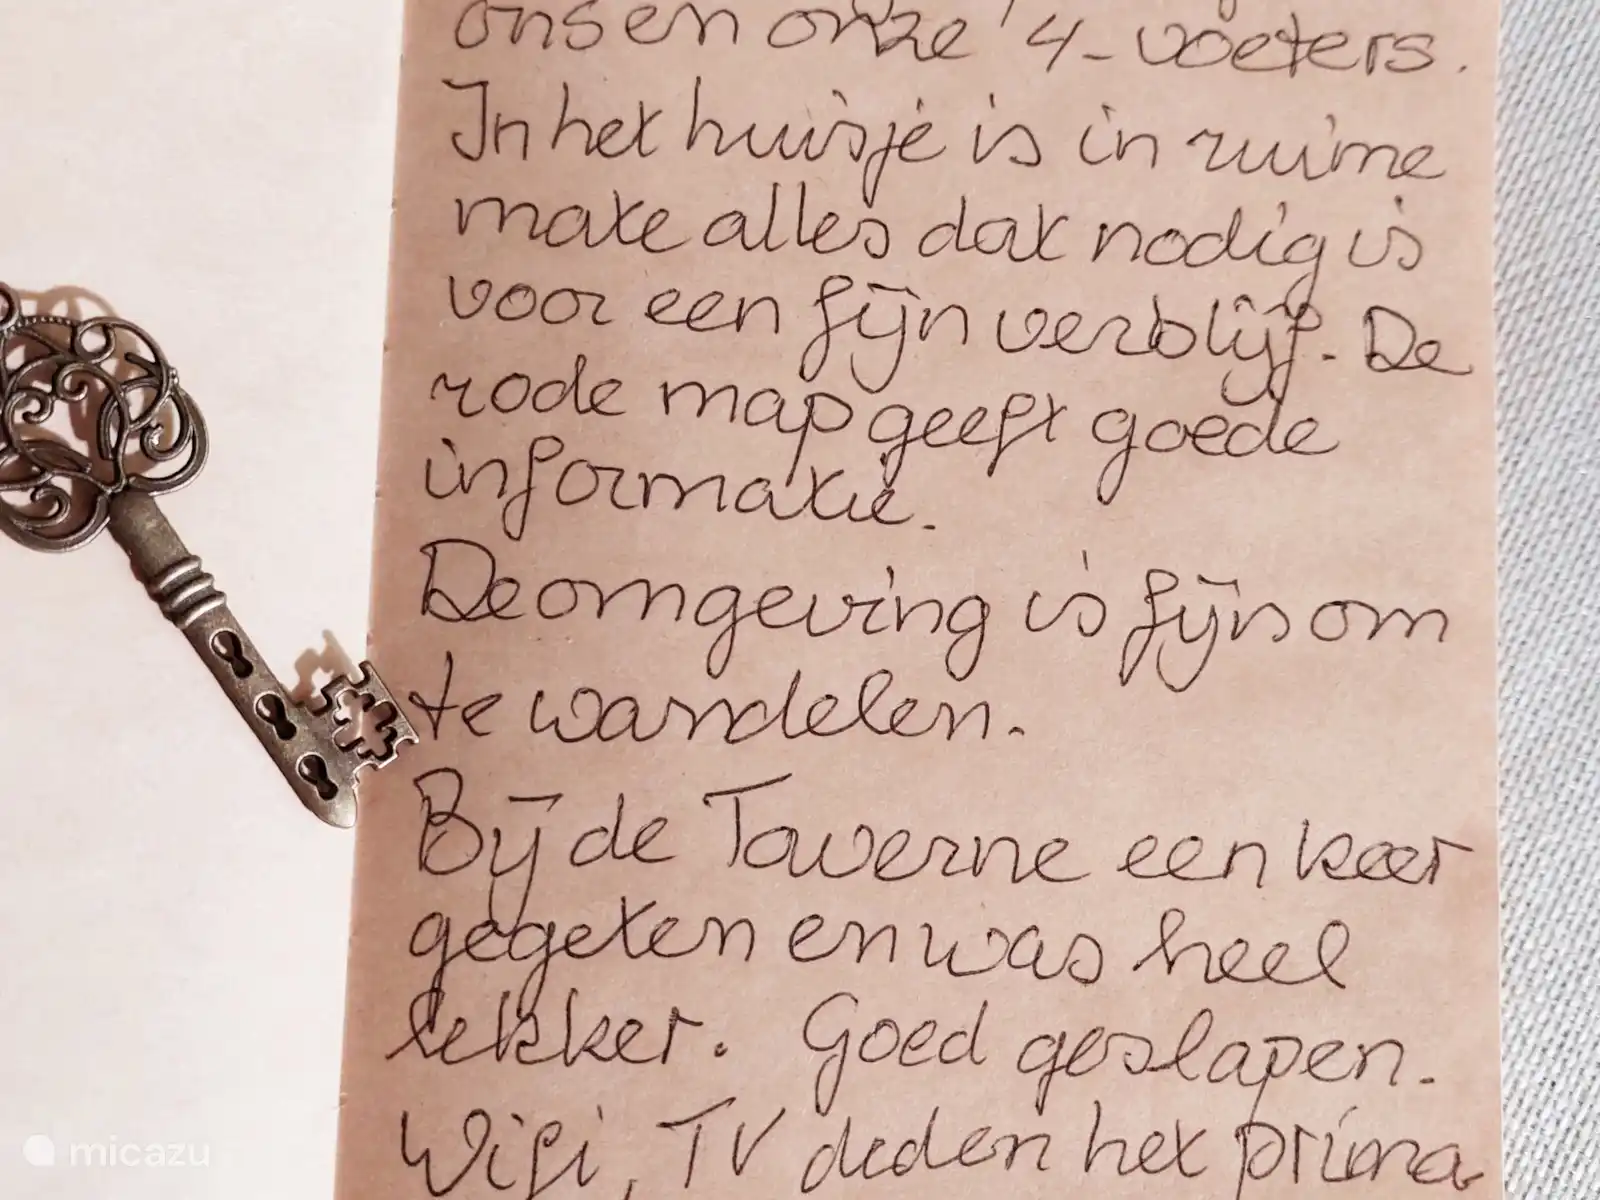 ons en onze 4-voeters.
In het huisje is in ruime
mate alles dat nodig is
voor een fijn verblijf. De
rode map geeft goede
informatie.
De omgeving is fijn om
te wandelen.
Bij de Taverne een keer
gegeten en was heel
lekker. Goed geslapen.
Wifi, TV deden het prima
micazu